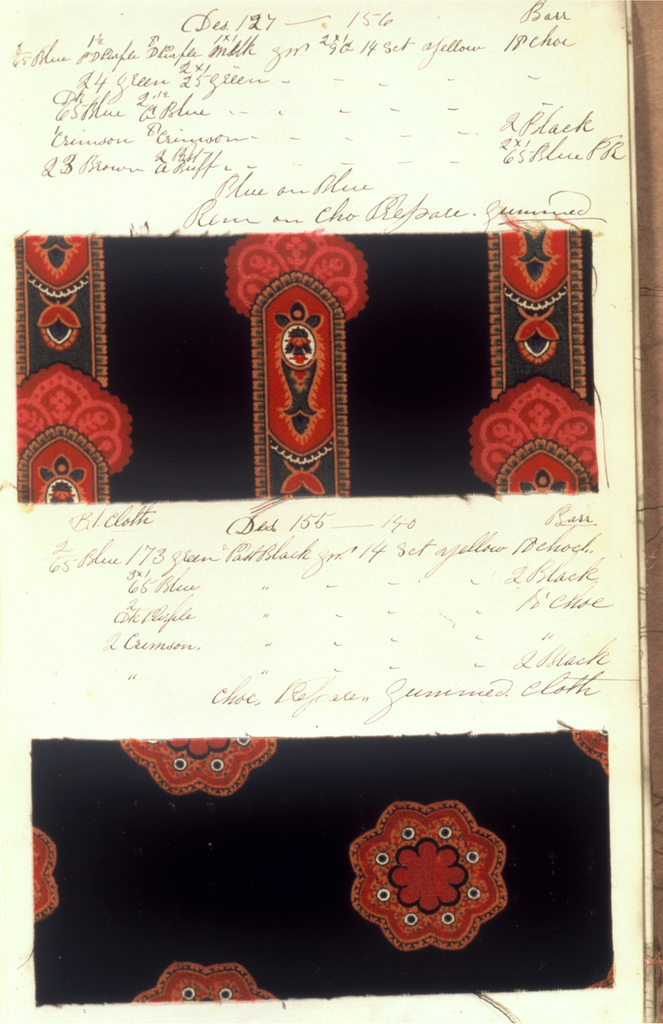 Des 127 — 156 Barr
65 Blue D Purple D Purple 14 Set a yellow 18 choc
24 green 2x1 25 green
Dk 65 Blue Blue
Crimson 8 Crimson 2 Black
23 Brown Buff 2x1 65 Blue PR
Blue on Blue
Rem on Cho Prepare. gummed
B.1. Cloth Des 155 — 140 Barr
2 65 Blue 173 green Past Black 14 Set a yellow 18 choc.
3x1 65 Blue " 2 Black
2 Dk Purple " 18 choc
2 Crimson. " "
" " 2 Black
choc. Prepare. Gummed. Cloth